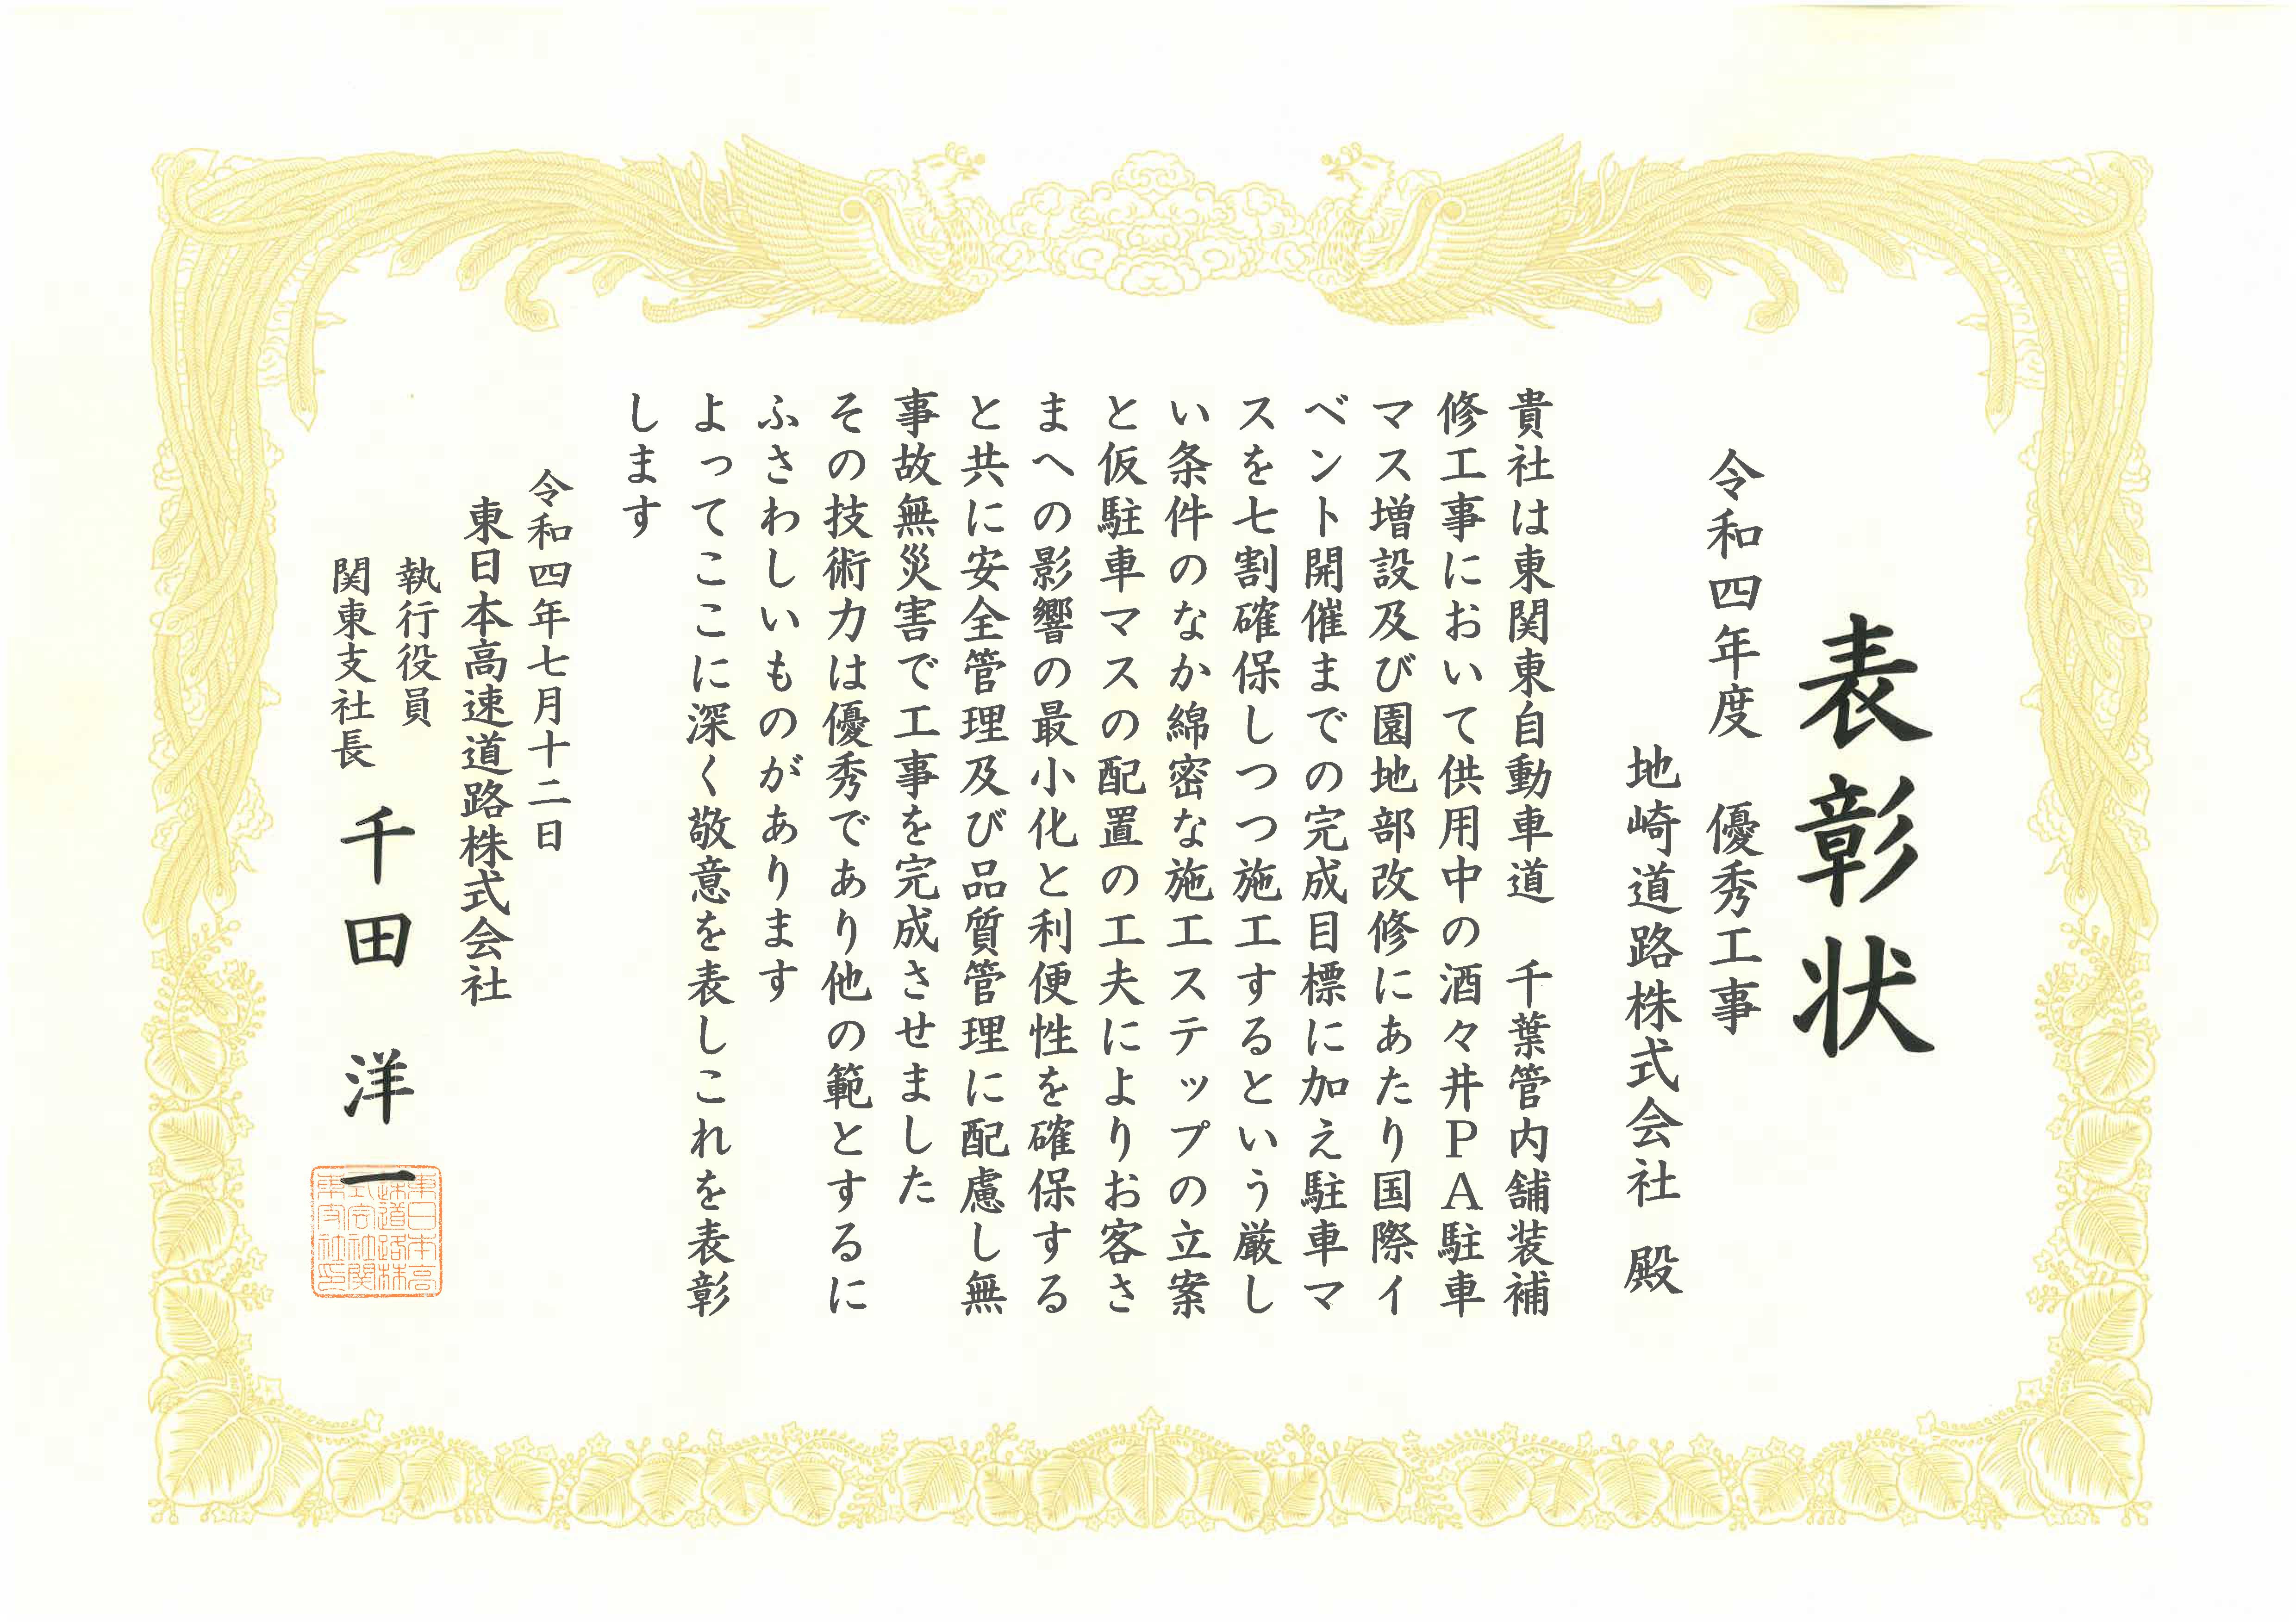 表彰状
令和四年度　優秀工事
地崎道路株式会社　殿
貴社は東関東自動車道　千葉管内舗装補
修工事において供用中の酒々井ＰＡ駐車
マス増設及び園地部改修にあたり国際イ
ベント開催までの完成目標に加え駐車マ
スを七割確保しつつ施工するという厳し
い条件のなか綿密な施工ステップの立案
と仮駐車マスの配置の工夫によりお客さ
まへの影響の最小化と利便性を確保する
と共に安全管理及び品質管理に配慮し無
事故無災害で工事を完成させました
その技術力は優秀であり他の範とするに
ふさわしいものがあります
よってここに深く敬意を表しこれを表彰
します
令和四年七月十二日
東日本高速道路株式会社
執行役員
関東支社長　千田洋一
東日本高
速道路株
式会社関
東支社印